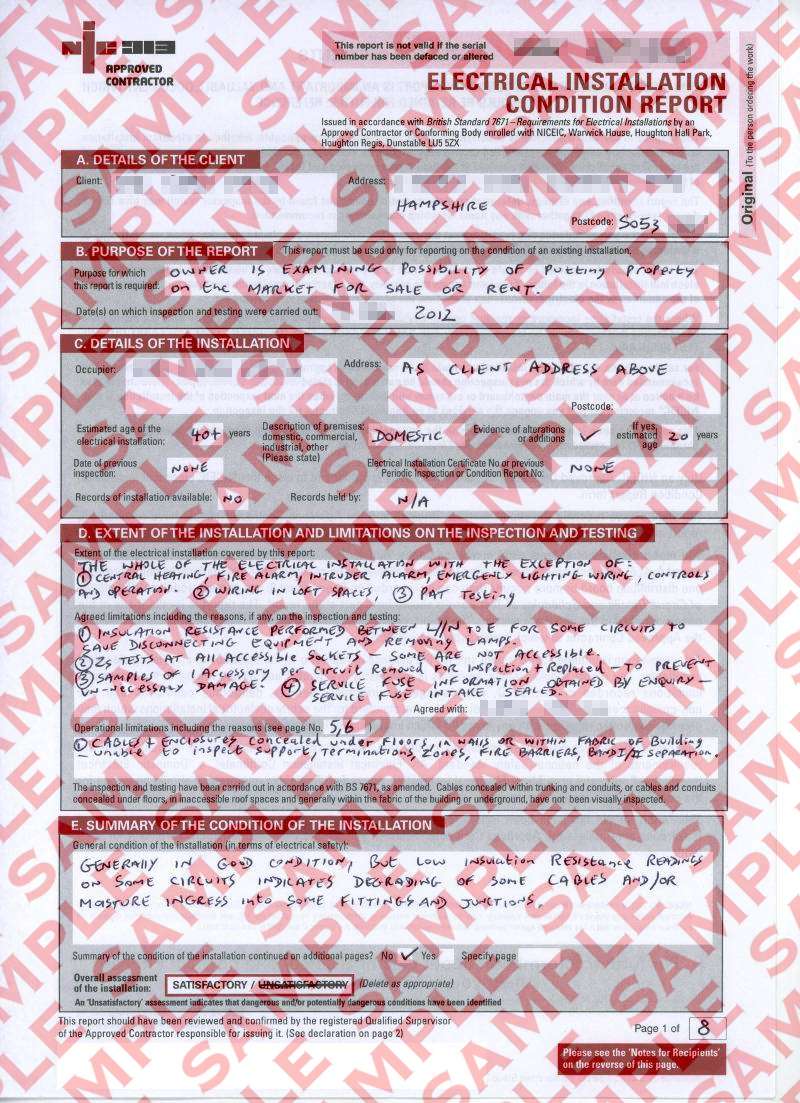 NICEIC
APPROVED
CONTRACTOR
This report is not valid if the serial
number has been defaced or altered
ELECTRICAL INSTALLATION
CONDITION REPORT
Issued in accordance with British Standard 7671 – Requirements for Electrical Installations by an
Approved Contractor or Conforming Body enrolled with NICEIC, Warwick House, Houghton Hall Park,
Houghton Regis, Dunstable LU5 5ZX
Original (To the person ordering the work)
A. DETAILS OF THE CLIENT
Client: Address:
HAMPSHIRE
Postcode: SO53
B. PURPOSE OF THE REPORT This report must be used only for reporting on the condition of an existing installation.
Purpose for which
this report is required:
OWNER IS EXAMINING POSSIBILITY OF PUTTING PROPERTY
ON THE MARKET FOR SALE OR RENT.
Date(s) on which inspection and testing were carried out: 2012
C. DETAILS OF THE INSTALLATION
Occupier: Address: AS CLIENT ADDRESS ABOVE
Postcode:
Estimated age of the
electrical installation: 40+ years
Description of premises:
domestic, commercial,
industrial, other
(Please state)
DOMESTIC
Evidence of alterations
or additions ✓
If yes,
estimated
age 20 years
Date of previous
inspection: NONE
Electrical Installation Certificate No or previous
Periodic Inspection or Condition Report No: NONE
Records of installation available: NO Records held by: N/A
D. EXTENT OF THE INSTALLATION AND LIMITATIONS ON THE INSPECTION AND TESTING
Extent of the electrical installation covered by this report:
THE WHOLE OF THE ELECTRICAL INSTALLATION WITH THE EXCEPTION OF:
① CENTRAL HEATING, FIRE ALARM, INTRUDER ALARM, EMERGENCY LIGHTING WIRING, CONTROLS
AND OPERATION. ② WIRING IN LOFT SPACES, ③ PAT Testing
Agreed limitations including the reasons, if any, on the inspection and testing:
① INSULATION RESISTANCE PERFORMED BETWEEN L//N TO E FOR SOME CIRCUITS TO
SAVE DISCONNECTING EQUIPMENT AND REMOVING LAMPS.
② Zs TESTS AT All ACCESSIBLE SOCKETS – SOME ARE NOT ACCESSIBLE.
③ SAMPLES OF 1 ACCESSORY Per CIRCUIT REMOVED FOR INSPECTION + REPLACED – TO PREVENT
UN-NECESSARY DAMAGE. ④ SERVICE FUSE INFORMATION OBTAINED BY ENQUIRY –
SERVICE FUSE INTAKE SEALED.
Agreed with:
Operational limitations including the reasons (see page No. 5,6 )
① CABLES + ENCLOSURES CONCEALED under FLOORS, in WALLS OR WITHIN FABRIC OF Building
– unable to inspect support, Terminations, Zones, FIRE BARRIERS, BAND I/II SEPARATION.
The inspection and testing have been carried out in accordance with BS 7671, as amended. Cables concealed within trunking and conduits, or cables and conduits
concealed under floors, in inaccessible roof spaces and generally within the fabric of the building or underground, have not been visually inspected.
E. SUMMARY OF THE CONDITION OF THE INSTALLATION
General condition of the installation (in terms of electrical safety):
GENERALLY IN GOOD CONDITION, BUT LOW INSULATION RESISTANCE READINGS
ON SOME CIRCUITS INDICATES DEGRADING OF SOME CABLES AND/OR
MOISTURE INGRESS INTO SOME FITTINGS AND JUNCTIONS.
Summary of the condition of the installation continued on additional pages? No ✓ Yes Specify page
Overall assessment
of the installation: SATISFACTORY / UNSATISFACTORY (Delete as appropriate)
An 'Unsatisfactory' assessment indicates that dangerous and/or potentially dangerous conditions have been identified
This report should have been reviewed and confirmed by the registered Qualified Supervisor
of the Approved Contractor responsible for issuing it. (See declaration on page 2)
Page 1 of 8
Please see the 'Notes for Recipients'
on the reverse of this page.
SAMPLE